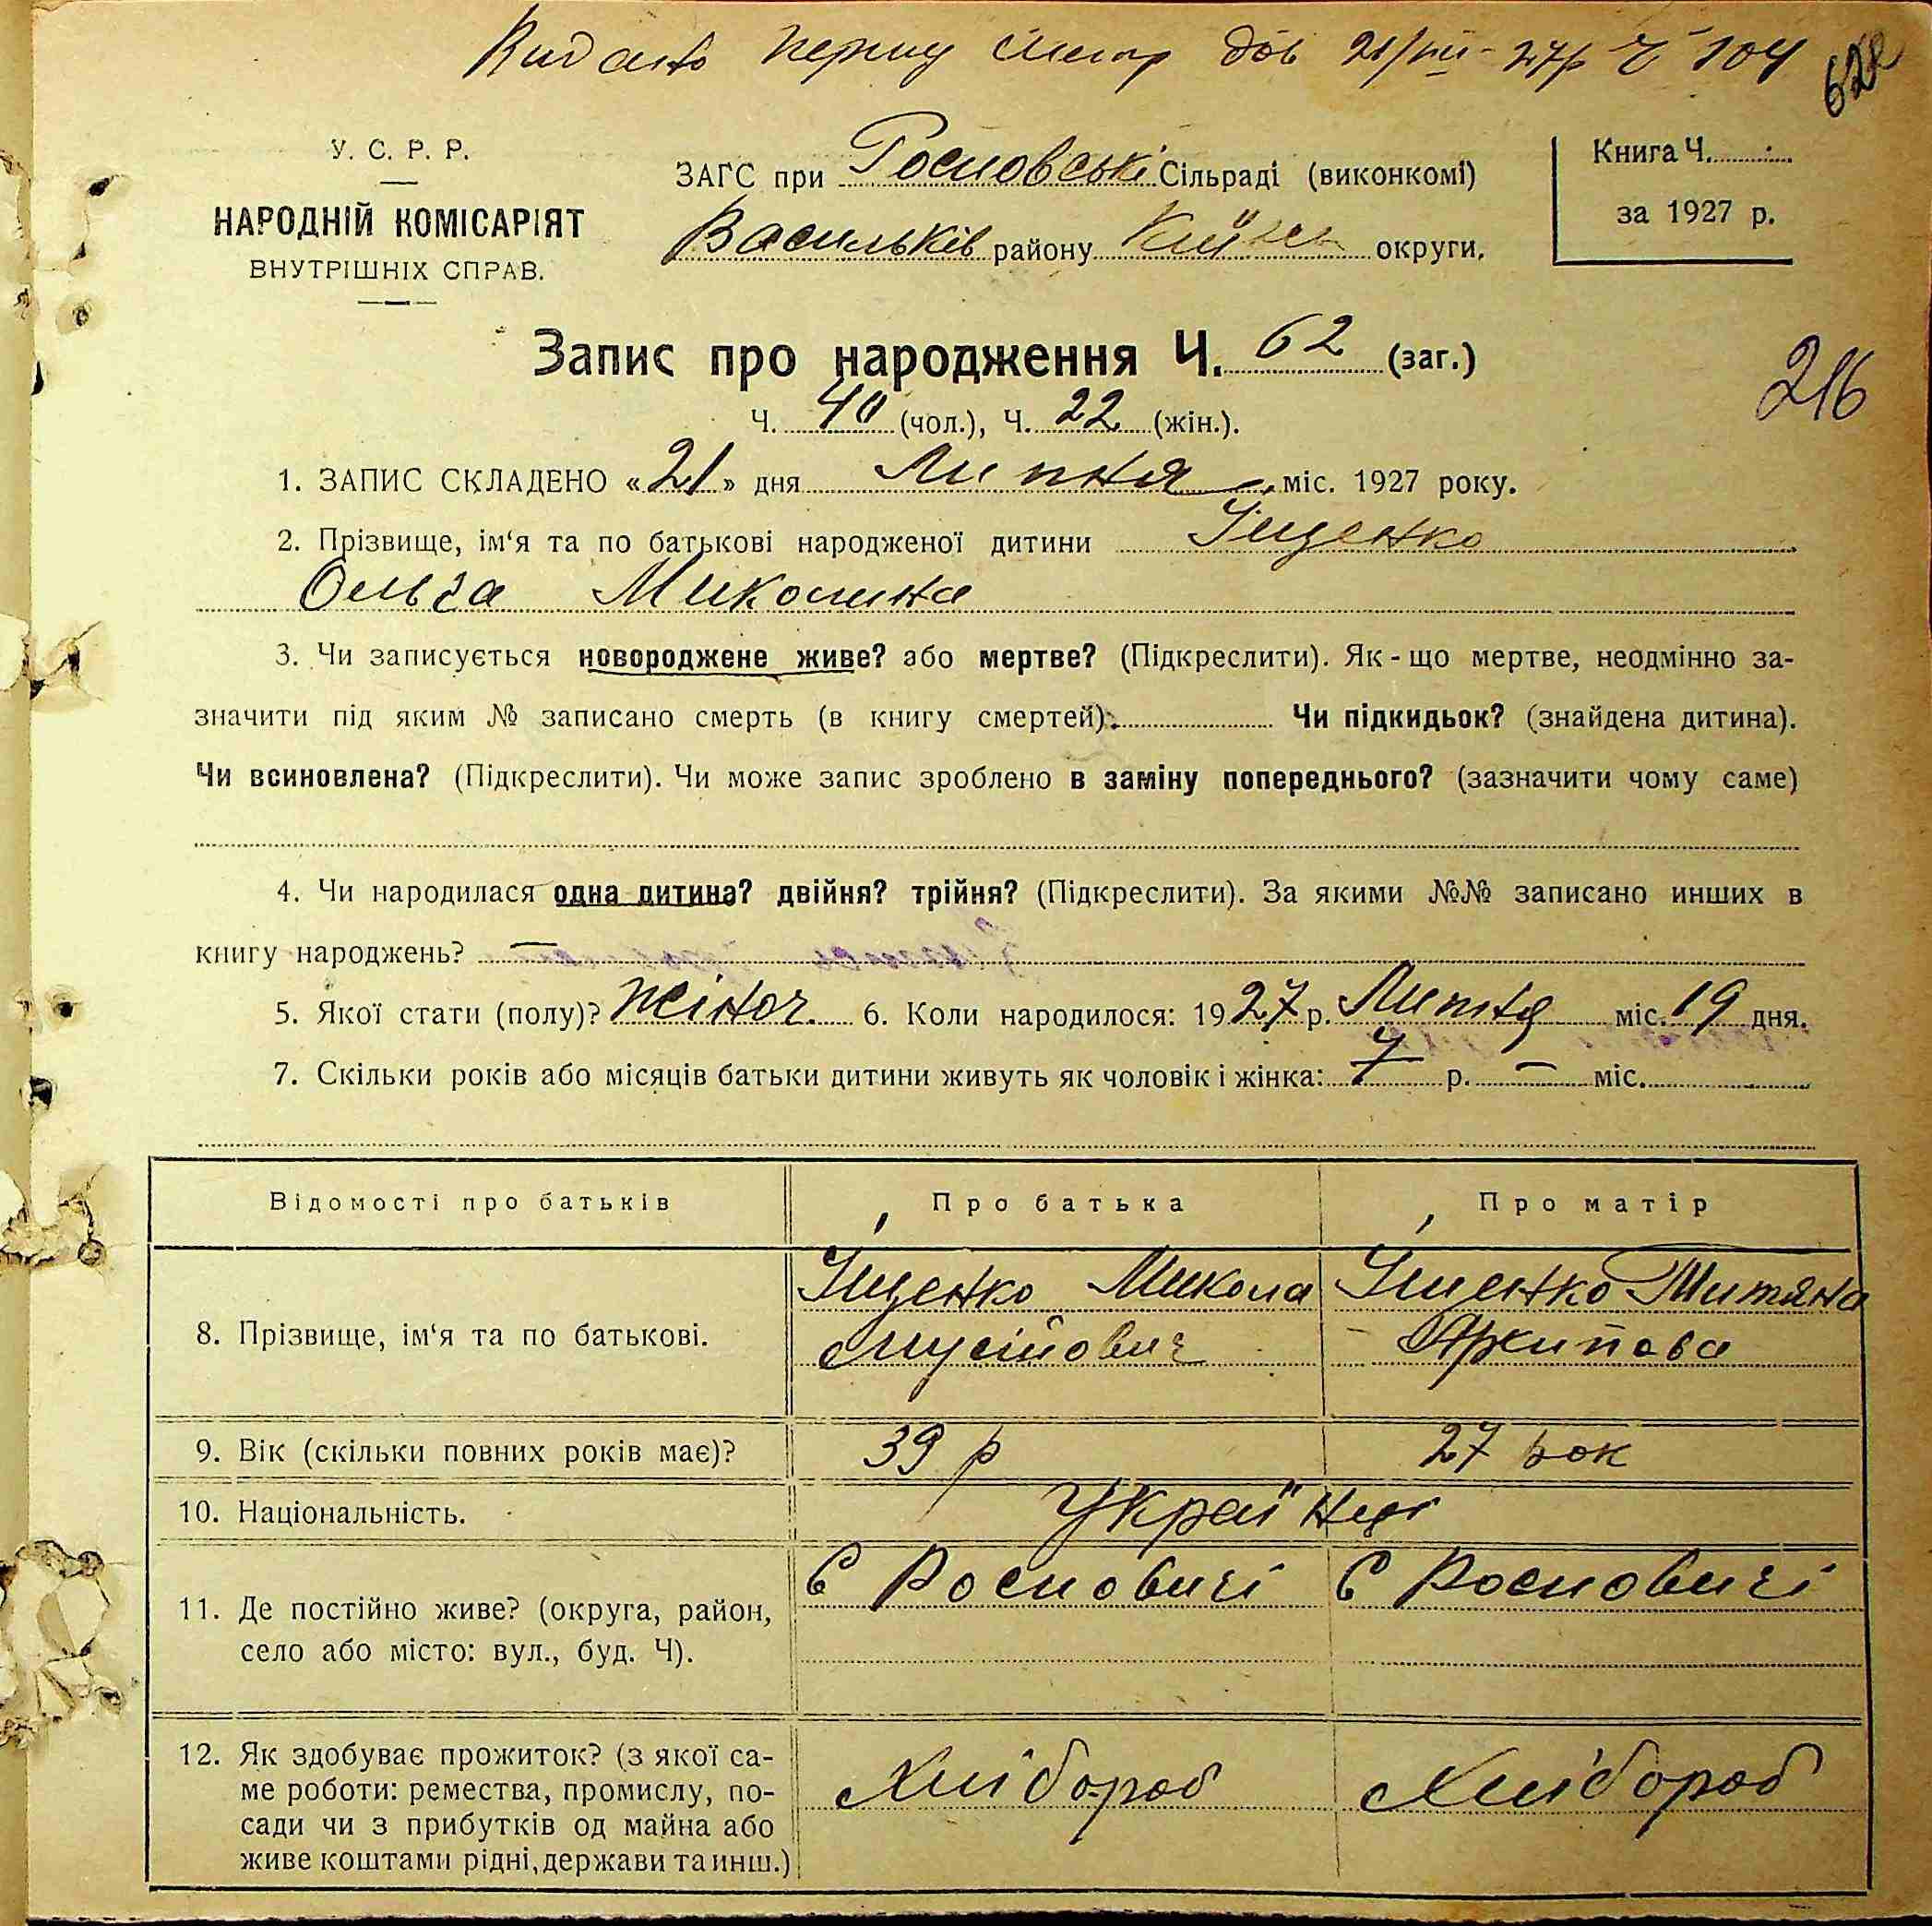 Видано першу метр 21/VII-27р Ч 104
622
У. С. Р. Р.
НАРОДНІЙ КОМІСАРІЯТ
ВНУТРІШНІХ СПРАВ.
ЗАГС при Росновські Сільраді (виконкомі)
Васильків району Київськ округи.
Книга Ч.
за 1927 р.
Запис про народження Ч. 62 (заг.)
216
Ч. 40 (чол.), Ч. 22 (жін.).
1. ЗАПИС СКЛАДЕНО «21» дня Липня міс. 1927 року.
2. Прізвище, ім‘я та по батькові народженої дитини Іщенко
Ольга Миколина
3. Чи записується новороджене живе? або мертве? (Підкреслити). Як-що мертве, неодмінно за-
значити під яким № записано смерть (в книгу смертей). Чи підкидьок? (знайдена дитина).
Чи всиновлена? (Підкреслити). Чи може запис зроблено в заміну попереднього? (зазначити чому саме)
4. Чи народилася одна дитина? двійня? трійня? (Підкреслити). За якими №№ записано инших в
книгу народжень? —
5. Якої стати (полу)? жіноч. 6. Коли народилося: 1927 р. Липня міс. 19 дня.
7. Скільки років або місяців батьки дитини живуть як чоловік і жінка: 7 р. — міс.
Відомості про батьків Про батька Про матір
8. Прізвище, ім‘я та по батькові. Іщенко Микола Іщенко Титяна
Мусійович Архипова
9. Вік (скільки повних років має)? 39 р 27 рок
10. Національність. Українці
11. Де постійно живе? (округа, район,
село або місто: вул., буд. Ч). С Росновичі С Росновичі
12. Як здобуває прожиток? (з якої са-
ме роботи: ремества, промислу, по-
сади чи з прибутків од майна або
живе коштами рідні, держави та инш.) Хлібороб Хлібороб